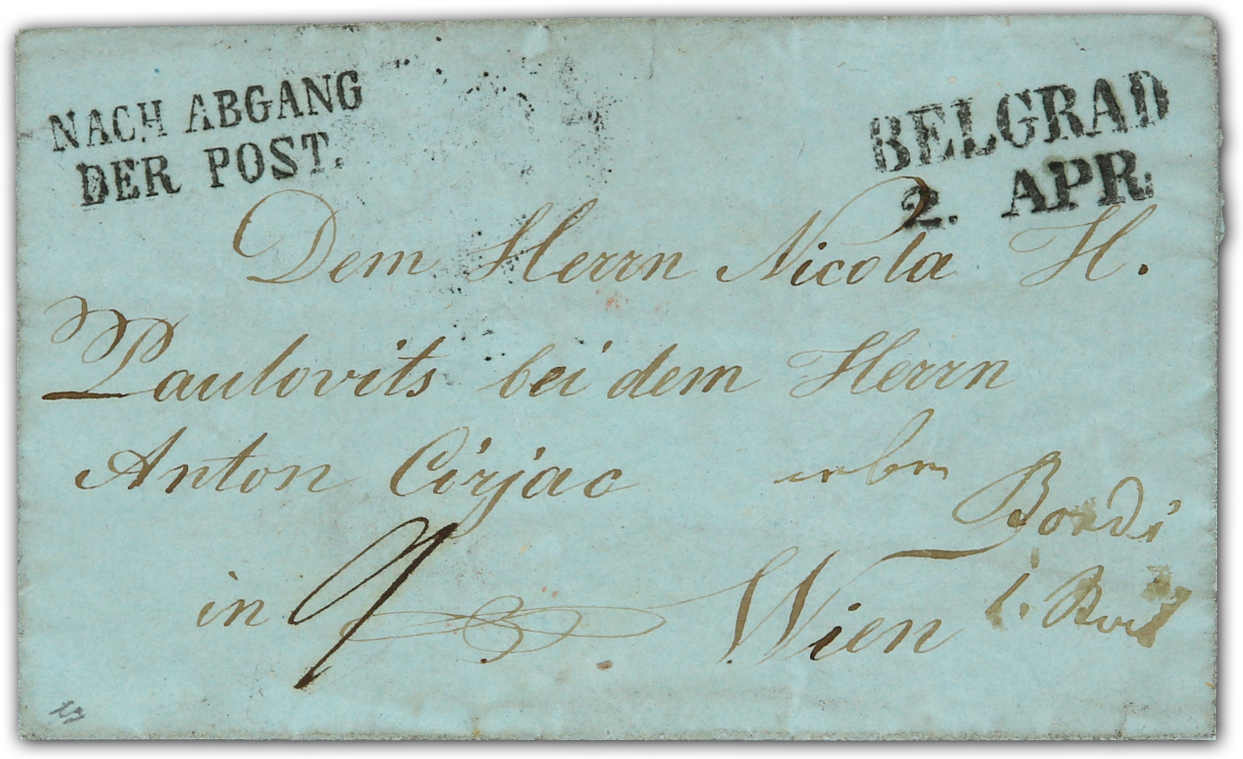 NACH ABGANG
DER POST.
BELGRAD
2. APR.
Dem Herrn Nicola H.
Paulovits bei dem Herrn
Anton Cirjac
in Wien